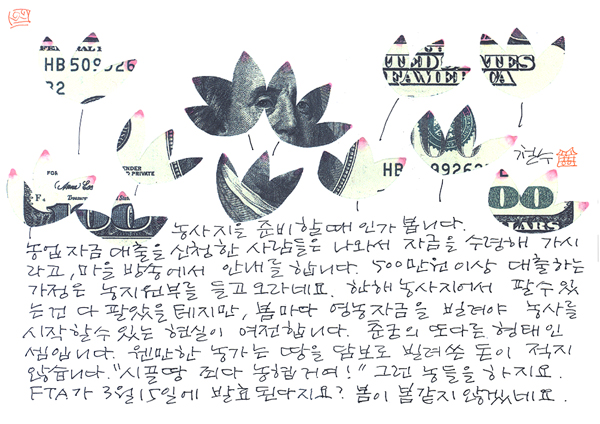 HB 509926
32
TED
ATES
FAMER
CA
FOR
ENDER
D PRIVATE
Treasurer
HB
9926
철수
00
LARS
농사지을 준비할 때인가 봅니다.
농업자금 대출을 신청한 사람들은 나와서 자금을 수령해 가시
라고, 마을방송에서 안내를 합니다. 500만원이상 대출하는
가정은 농지원부를 들고오라데요. 한해 농사지어서 팔수있
는건 다 팔았을테지만, 봄마다 영농자금을 빌려야 농사를
시작할수있는 현실이 여전합니다. 춘궁의 또다른 형태인
셈입니다. 웬만한 농가는 땅을 담보로 빌려쓴 돈이 적지
않습니다. "시골땅 죄다 농협거여!" 그런 농들을 하지요.
FTA가 3월15일에 발효된다지요? 봄이 봄같지 않겠네요.